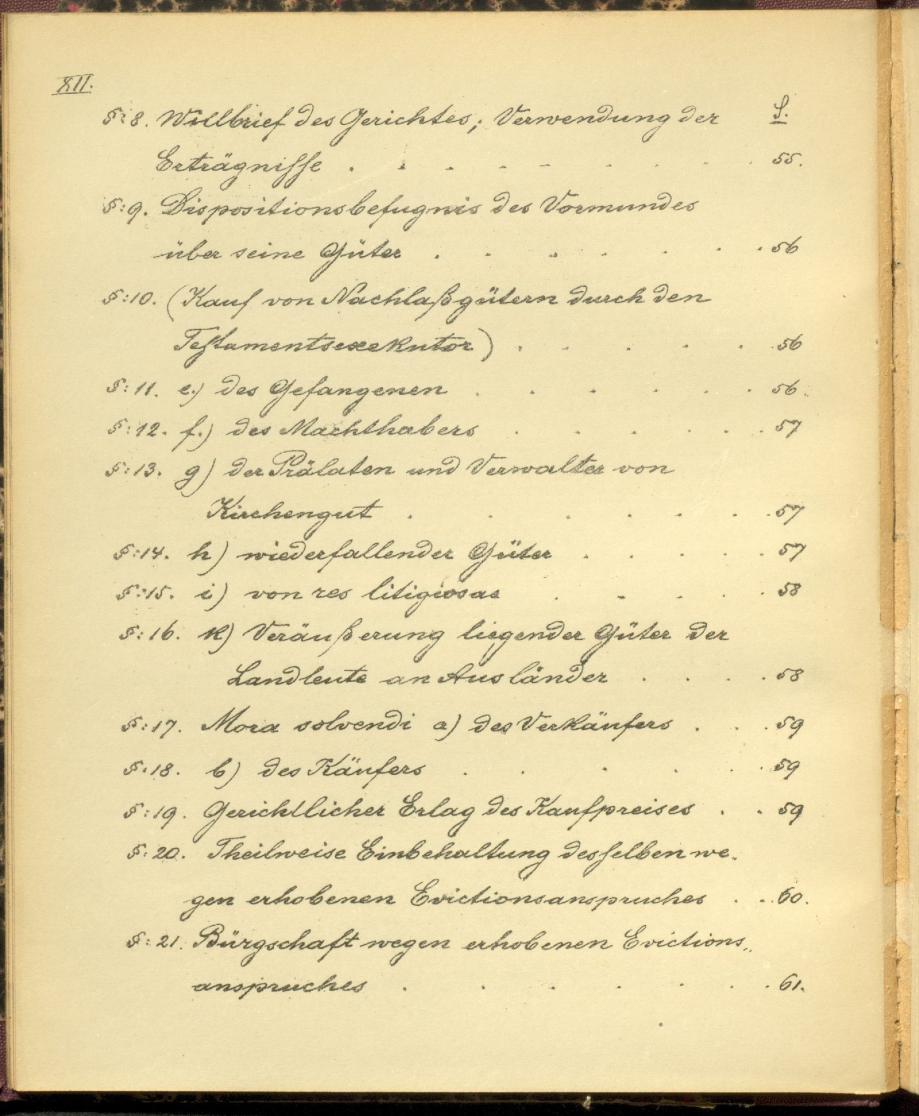 XII.
S.
§:8. Willbrief des Gerichtes; Verwendung der
Erträgnisse . . . . . . . . . . 55.
§:9. Dispositionsbefugnis des Vormundes
über seine Güter . . . . . . . . 56
§:10. (Kauf von Nachlaßgütern durch den
Testamentsexekutor) . . . . . . 56
§:11. e.) des Gefangenen . . . . . . . 56.
§:12. f.) des Machthabers . . . . . . 57
§:13. g) der Prälaten und Verwalter von
Kirchengut . . . . . . . 57
§:14. h) wiederfallender Güter . . . . . 57
§:15. i) von res litigiosae . . . . . 58
§:16. k) Veräußerung liegender Güter der
Landleute an Ausländer . . . . 58
§:17. Mora solvendi a) des Verkäufers . . . 59
§:18. b) des Käufers . . . . . . 59
§:19. Gerichtlicher Erlag des Kaufpreises . . 59
§:20. Theilweise Einbehaltung desselben we-
gen erhobenen Evictionsanspruches . . . 60.
§:21. Bürgschaft wegen erhobenen Evictions„
anspruches . . . . . . . . 61.